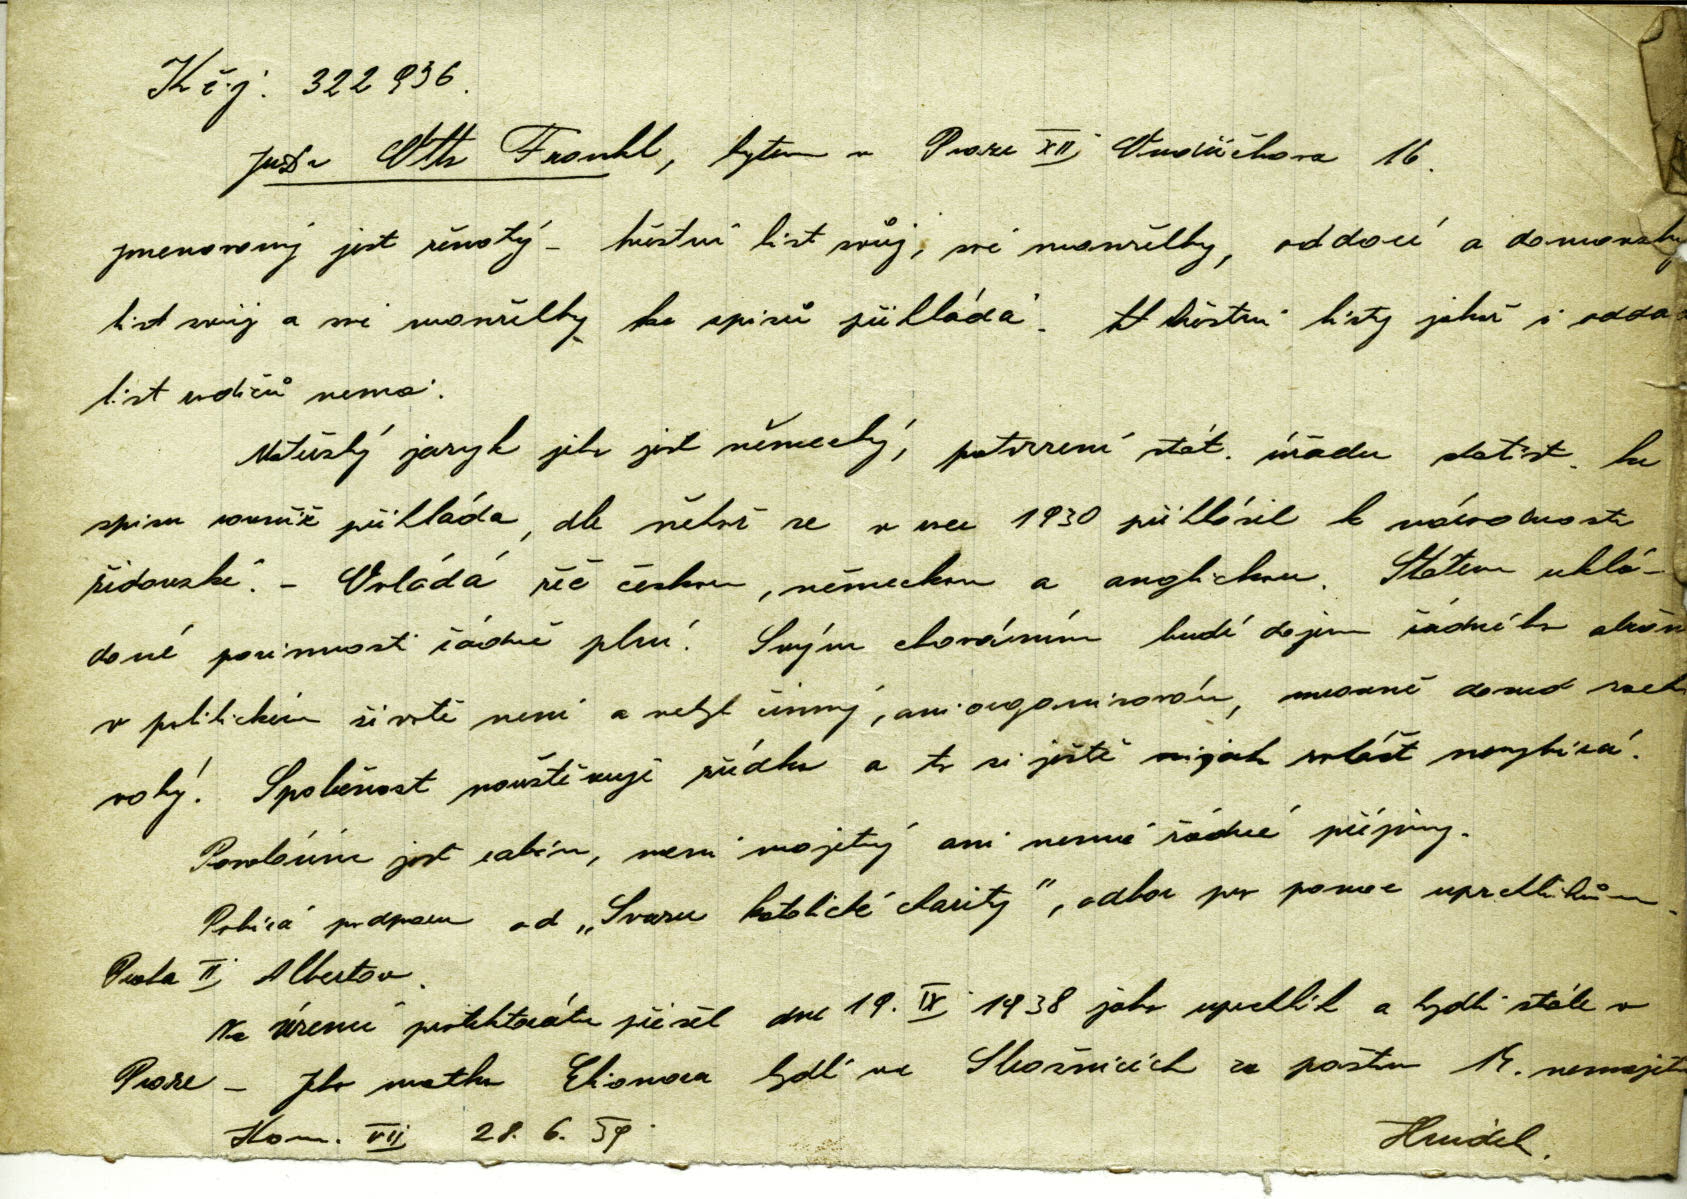 K č.j: 322936.
JUDr Otto Frankl, bytem v Praze XII, 16.
jmenovaný jest ženatý - křestní list svůj, své manželky, oddací a domovský
list svůj a své manželky ke spisů přikládá. křestní listy jakož i odda
list rodičů nemá.
Mateřský jazyk jeho jest německý, potvrzení stát. úřadu statist. ke
spisu rovněž přikládá, dle něhož se v roce 1930 přihlásil k národnosti
židovské. - Ovládá řeč českou, německou a anglickou. Státem uklá-
dané povinnosti řádně plní. Svým chováním budí dojem řádného
v politickém životě není a nebyl činný, ani organisován, mravně dosud zach
valý. Společnost navštěvuje zřídka a to si ještě nijak zvlášť nevybírá.
Povoláním jest, není majetný ani nemá řádné příjmy.
Pobírá podporu od „Svazu katolické charity", odbor pro pomoc uprchlíkům.
Praha II, Albertov.
Na území protektorátu přišel dne 19. IX 1938 jako uprchlík a bydlí stále v
Praze - Jeho matka Eleonora bydlí ve za poštou 14. nemajetn
Kom. VII 28. 6. 39.